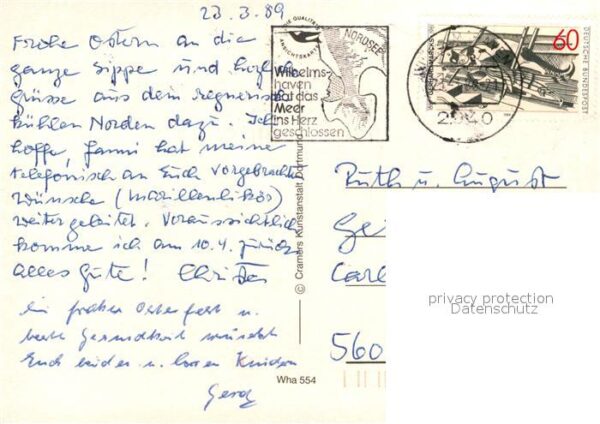 23.3.89
Frohe Ostern an die
ganze Sippe und herzl.
Grüsse aus dem regnerisch
kühlen Norden dazu. Ich
hoffe, Fanni hat meine
telefonisch an Euch vorgebrachten
Wünsche (Marillenlikör)
weitergeleitet. Voraussichtlich
komme ich am 10.4. zurück
Alles Gute!
Ein frohes Osterfest u.
beste Gesundheit wünscht
Euch beiden u.
NORDSEE
Wilhelms-
haven
hat das
Meer
ins Herz
geschlossen
2940
60
DEUTSCHE BUNDESPOST
© Cramers Kunstanstalt Dortmund
Ruth u. August
Carl
560
privacy protection
Datenschutz
Wha 554